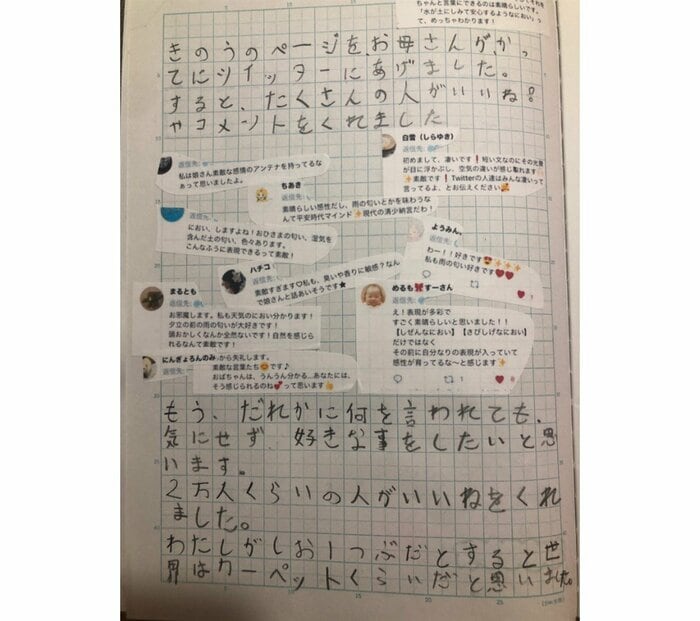 ちゃんと言にできるのは素晴らしいです。
「水が土にしみて安心するようなにおい」って、めっちゃわかります！
きのうのページを、お母さんがかっ
てにツイッターにあげました。
すると、たくさんの人がいいね！
やコメントをくれました
返信先:
私は娘さん素敵な感情のアンテナを持ってるな
ぁって思いましたよ。
白雪（しらゆき）
返信先:
初めまして、凄いです❗短い文なのにその光景
が目に浮かぶし、空気の違いが感じ取れます
✨素敵です❗Twitterの人達はみんな凄いって
言ってるよ、とお伝えください🥰
ちあき
返信先:
素晴らしい感性だし、雨の匂いとかを味わうな
んて平安時代マインド✨現代の清少納言だわ！
返信先:
におい、しますよね！おひさまの匂い、湿気を
含んだ土の匂い、色々あります。
こんなふうに表現できるって素敵！
ようみん。
返信先:
わー！！好きです😍✨✨✨
私も雨の匂い好きです❤❤
1
ハチコ
返信先:
素敵すぎます♡私も、臭いや香りに敏感？なん
で娘さんと話あいそうです★
まるとも
返信先:
お邪魔します。私も天気のにおい分かります！
夕立の前の雨の匂いが大好きです！
頭おかしくなんか全然ないです！自然を感じら
れるなんて素敵です！
めるも🎀すーさん
返信先:
え！表現が多彩で
すごく素晴らしいと思いました！！
【しぜんなにおい】【さびしげなにおい】
だけではなく
その前に自分なりの表現が入っていて
感性が育ってるな〜と感じます✨
1
1
にんぎょろんのみ
から失礼します。
返信先:
素敵な言葉たち😊です♪
おばちゃんは、うんうん分かる…あなたには、
そう感じられるのね💕って思います👍
もう、だれかに何を言われても、
気にせず、好きな事をしたいと思
います。
2万人くらいの人がいいねをくれ
ました。
わたしがしお1つぶだとすると世
界はカーペットくらいだと思いました。